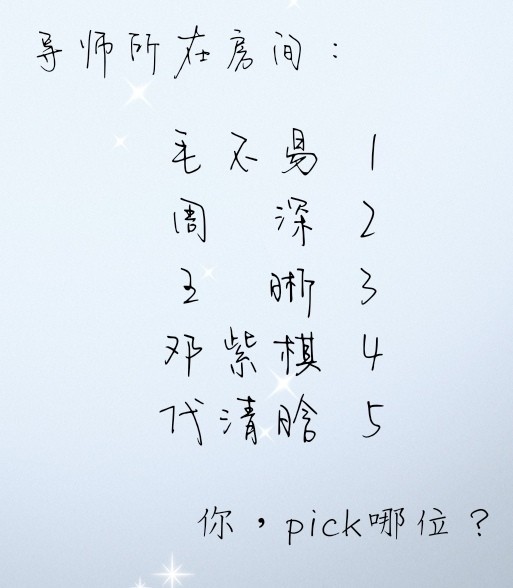 导师所在房间：
毛不易 1
周 深 2
王 晰 3
邓紫棋 4
代清晗 5
你，pick哪位？